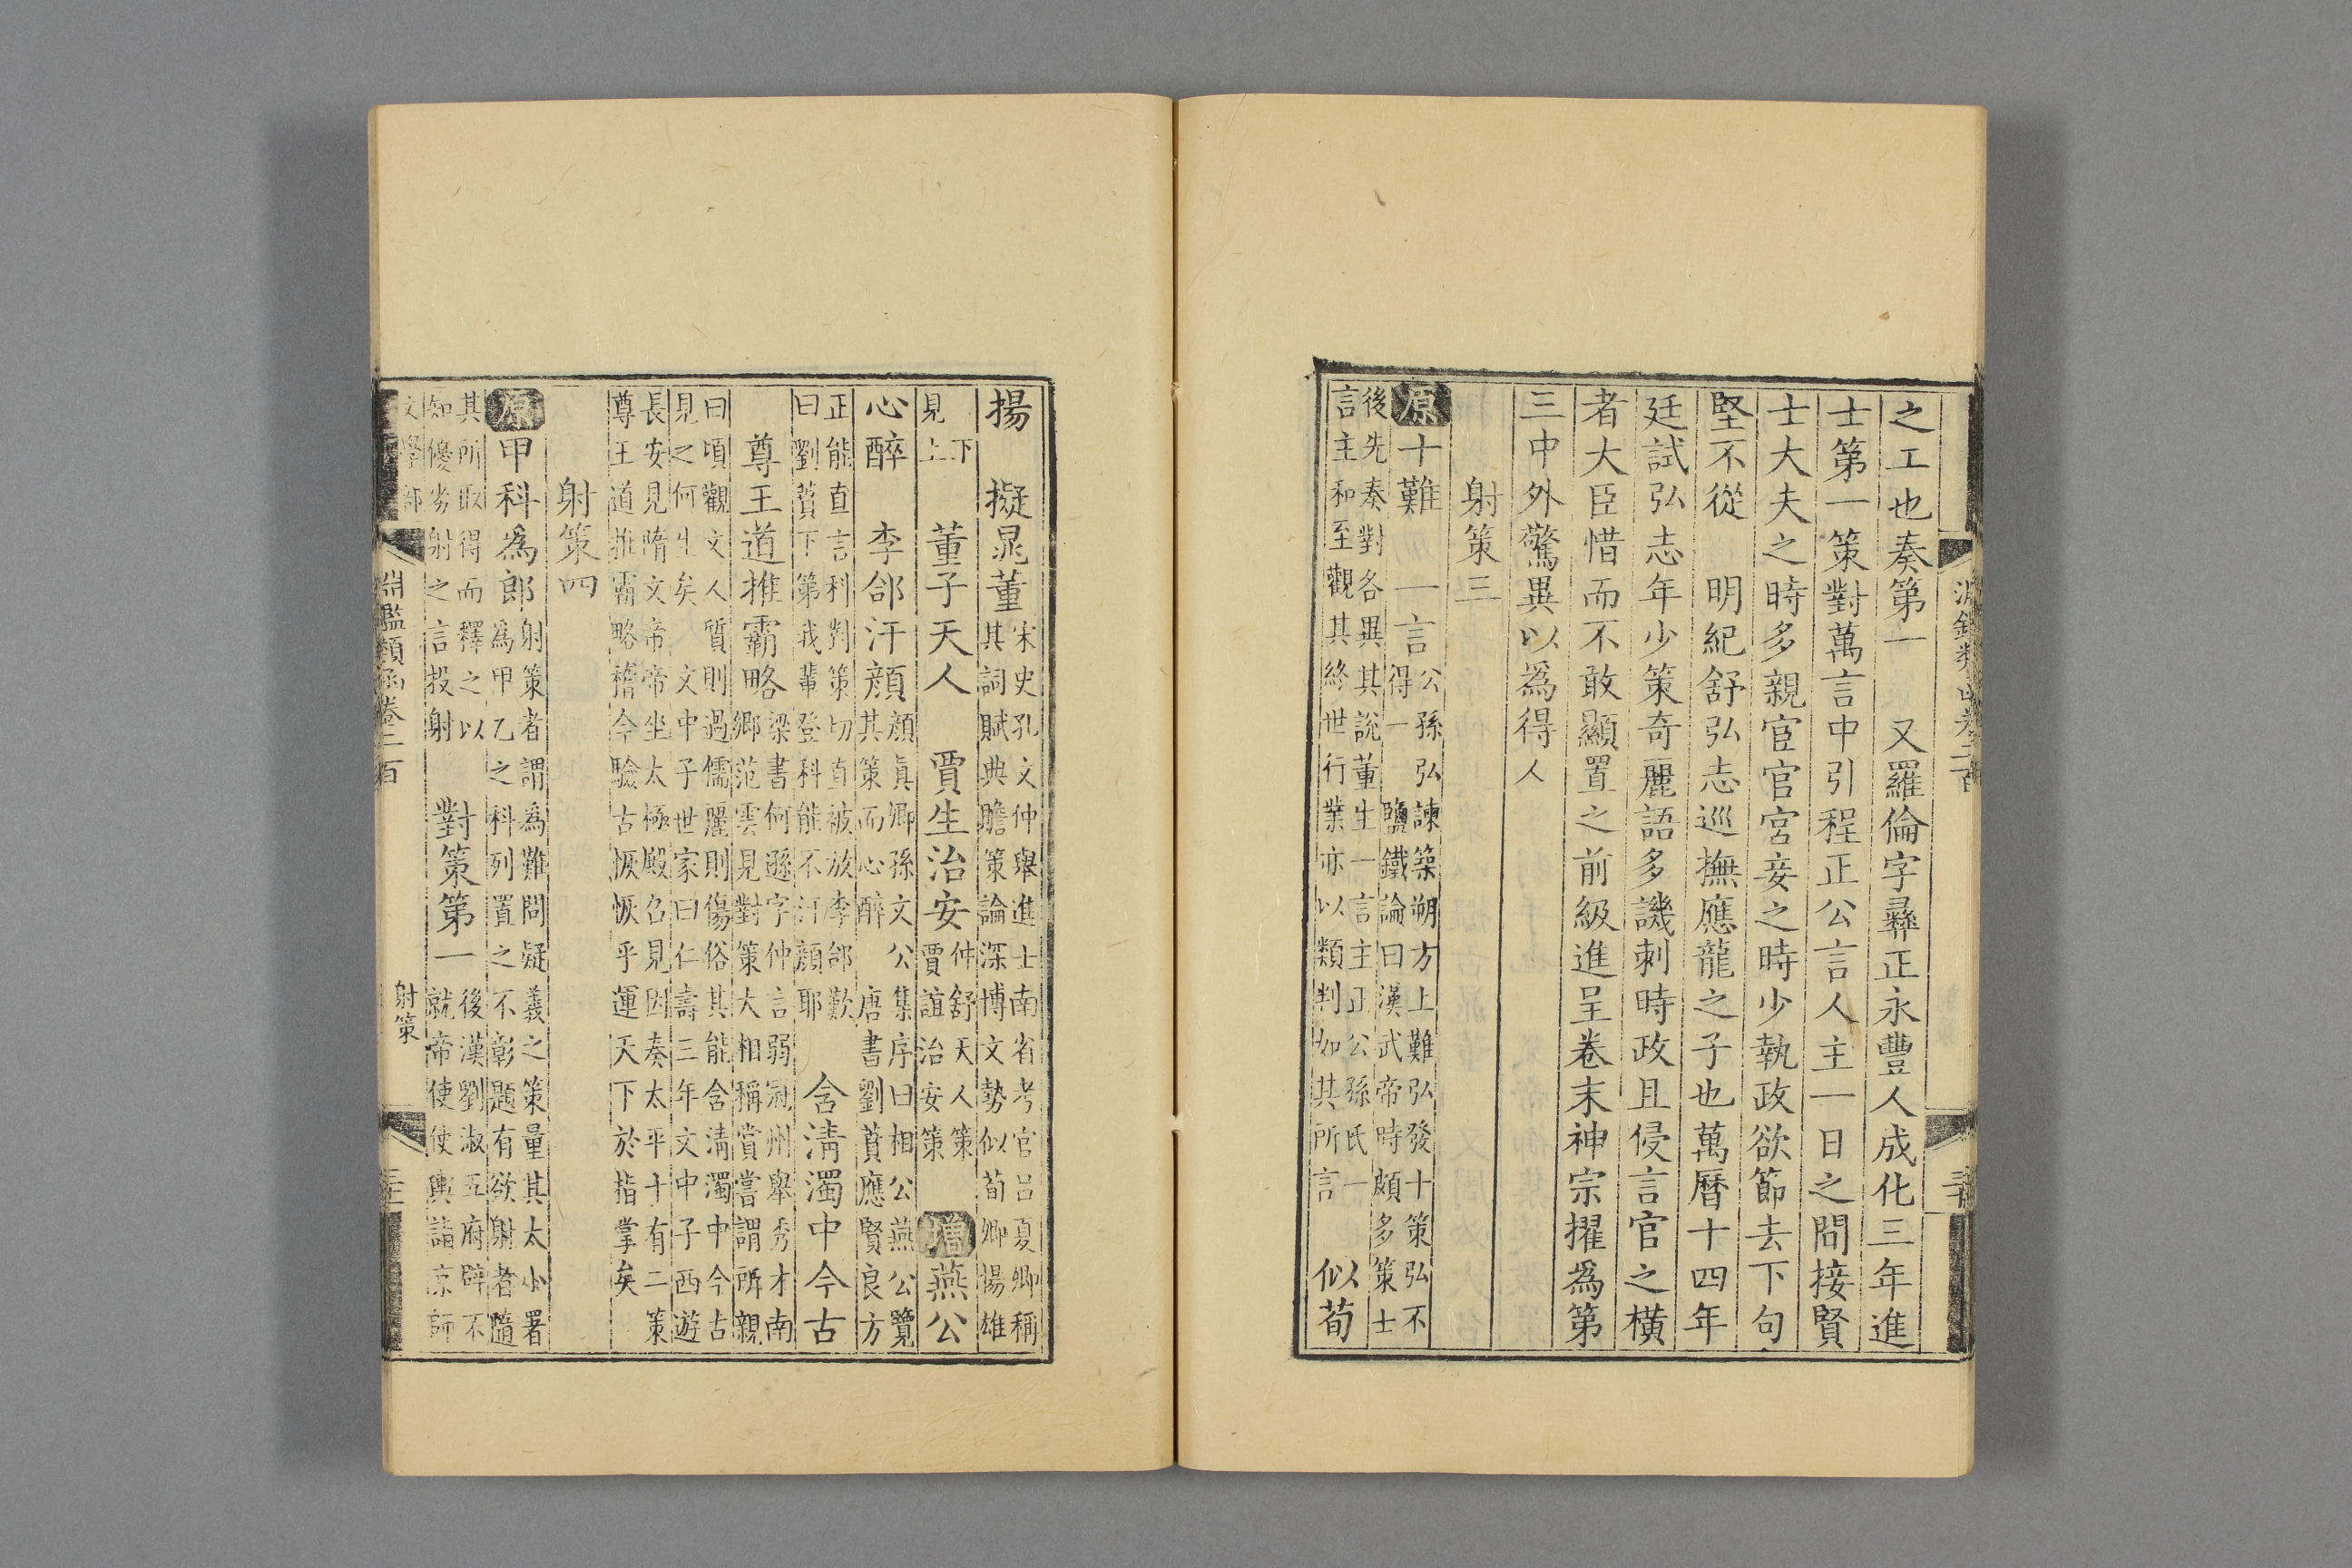 之工也奏第一　又羅倫字彝正永豐人成化三年進
士第一策對萬言中引程正公言人主一日之間接賢
士大夫之時多親宦官宮妾之時少執政欲節去下句
堅不從　明紀舒弘志巡撫應龍之子也萬曆十四年
廷試弘志年少策奇麗語多譏刺時政且侵言官之橫
者大臣惜而不敢顯置之前級進呈卷末神宗擢爲第
三中外驚異以爲得人
射策三
原十難　一言
公孫弘諫築朔方上難弘發十策弘不
得一　鹽鐵論曰漢武帝時頗多策士
後先奏對各異其說董生一言主正公孫氏一
言主和至觀其終世行業亦以類判如其所言
似荀
揚　擬晁董
宋史孔文仲舉進士南省考官呂夏卿稱
其詞賦典贍策論深博文勢似荀卿揚雄
下
見上
董子天人　賈生治安
仲舒天人策
賈誼治安策
增燕公
心醉　李郃汗顏
顏眞卿孫文公集序曰相公燕公覽
其策而心醉　唐書劉蕡應賢良方
正能直言科對策切直被放李郃歎
曰劉蕡下第我輩登科能不汗顏耶
含淸濁中今古
尊王道推霸略
梁書何遜字仲言弱冠州舉秀才南
鄉范雲見對策大相稱賞嘗謂所親
曰頃觀文人質則過儒麗則傷俗其能含淸濁中今古
見之何生矣　文中子世家曰仁壽三年文中子西遊
長安見隋文帝帝坐太極殿召見因奏太平十有二策
尊王道推霸略稽今驗古恢恢乎運天下於指掌矣
射策四
原甲科爲郎
射策者謂爲難問疑義之策量其太小署
爲甲乙之科列置之不彰題有欲射者隨
其所取得而釋之以
知優劣射之言投射
對策第一
後漢劉淑五府辟不
就帝使使輿詣京師
淵鑑類函卷二百
射策